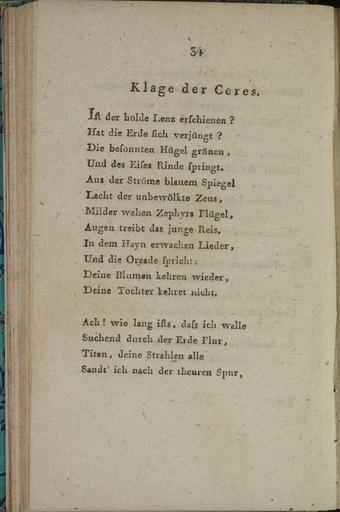 34
Klage der Ceres.
Ist der holde Lenz erschienen?
Hat die Erde sich verjüngt?
Die besonnten Hügel grünen,
Und des Eises Rinde springt.
Aus der Ströme blauem Spiegel
Lacht der unbewölkte Zeus,
Milder wehen Zephyrs Flügel,
Augen treibt das junge Reis.
In dem Hayn erwachen Lieder,
Und die Oreade spricht:
Deine Blumen kehren wieder,
Deine Tochter kehret nicht.
Ach! wie lang ists, dass ich walle
Suchend durch der Erde Flur,
Titan, deine Strahlen alle
Sandt' ich nach der theuren Spur,